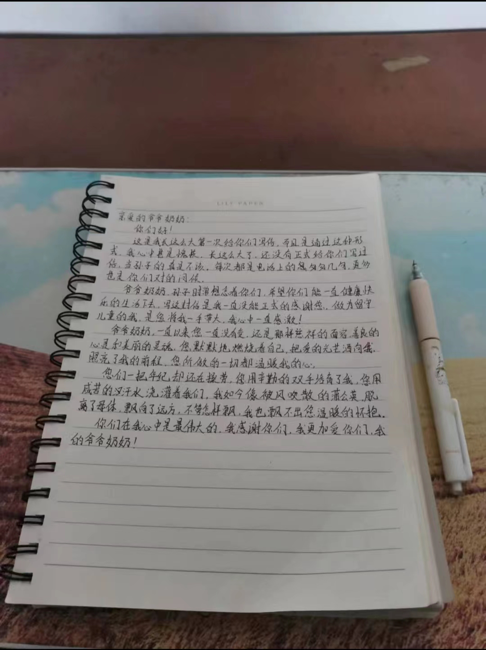 亲爱的爷爷奶奶:
你们好!
这是我长这么大第一次给你们写信,而且是通过这种形
式,我心中甚是愧疚,长这么大了,还没有正式给你们写过
信,当孙子的真是不该,每次都是电话上的匆匆几句,真多
也是你们对的问候。
爷爷奶奶,孙子时常想念着你们,希望你们能一直健康快
乐的生活下去,写这封信是我一直没能正式的感谢您,做为留守
儿童的我,是您将我一手带大,我心中一直感激!
爷爷奶奶,一直以来您一直没变,还是那样慈祥的面容,善良的
心是和美丽的灵魂,您默默地燃烧着自己,把爱的光芒
照亮了我的前程,您所做的一切都温暖我的心。
您们一把年纪,却还在操劳,您用辛勤的双手培育了我,您用
疲劳的汗水浇灌着我们,我如今像被风吹散的蒲公英,脱
离了母体,飘向了远方,不管怎样飘,我也飘不出您温暖的怀抱。
你们在我心中是最伟大的,我感谢你们,我更加爱你们,我
的爷爷奶奶!